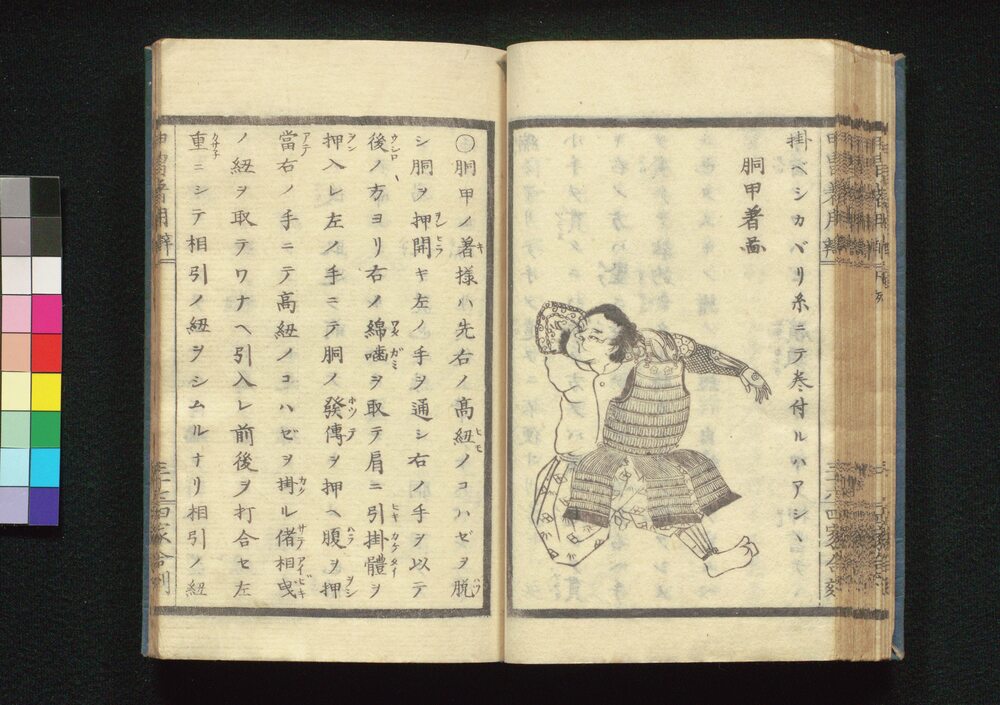 掛ベシカバリ糸ニテ巻付ルハアシヽ
胴甲著図
胴甲ノ著様ハ先右ノ高紐ノコハゼヲ脱
シ胴ヲ押開キ左ノ手ヲ通シ右ノ手ヲ以テ
後ノ方ヨリ右ノ綿噛ヲ取テ肩ニ引掛體ヲ
押入レ左ノ手ニテ胴ノ發傳ヲ押ヘ腹ヲ押
當右ノ手ニテ高紐ノコハゼヲ掛ル偖相曳
ノ紐ヲ取テワナヘ引入レ前後ヲ打合セ左
重ニシテ相引ノ紐ヲシムルナリ相引ノ紐